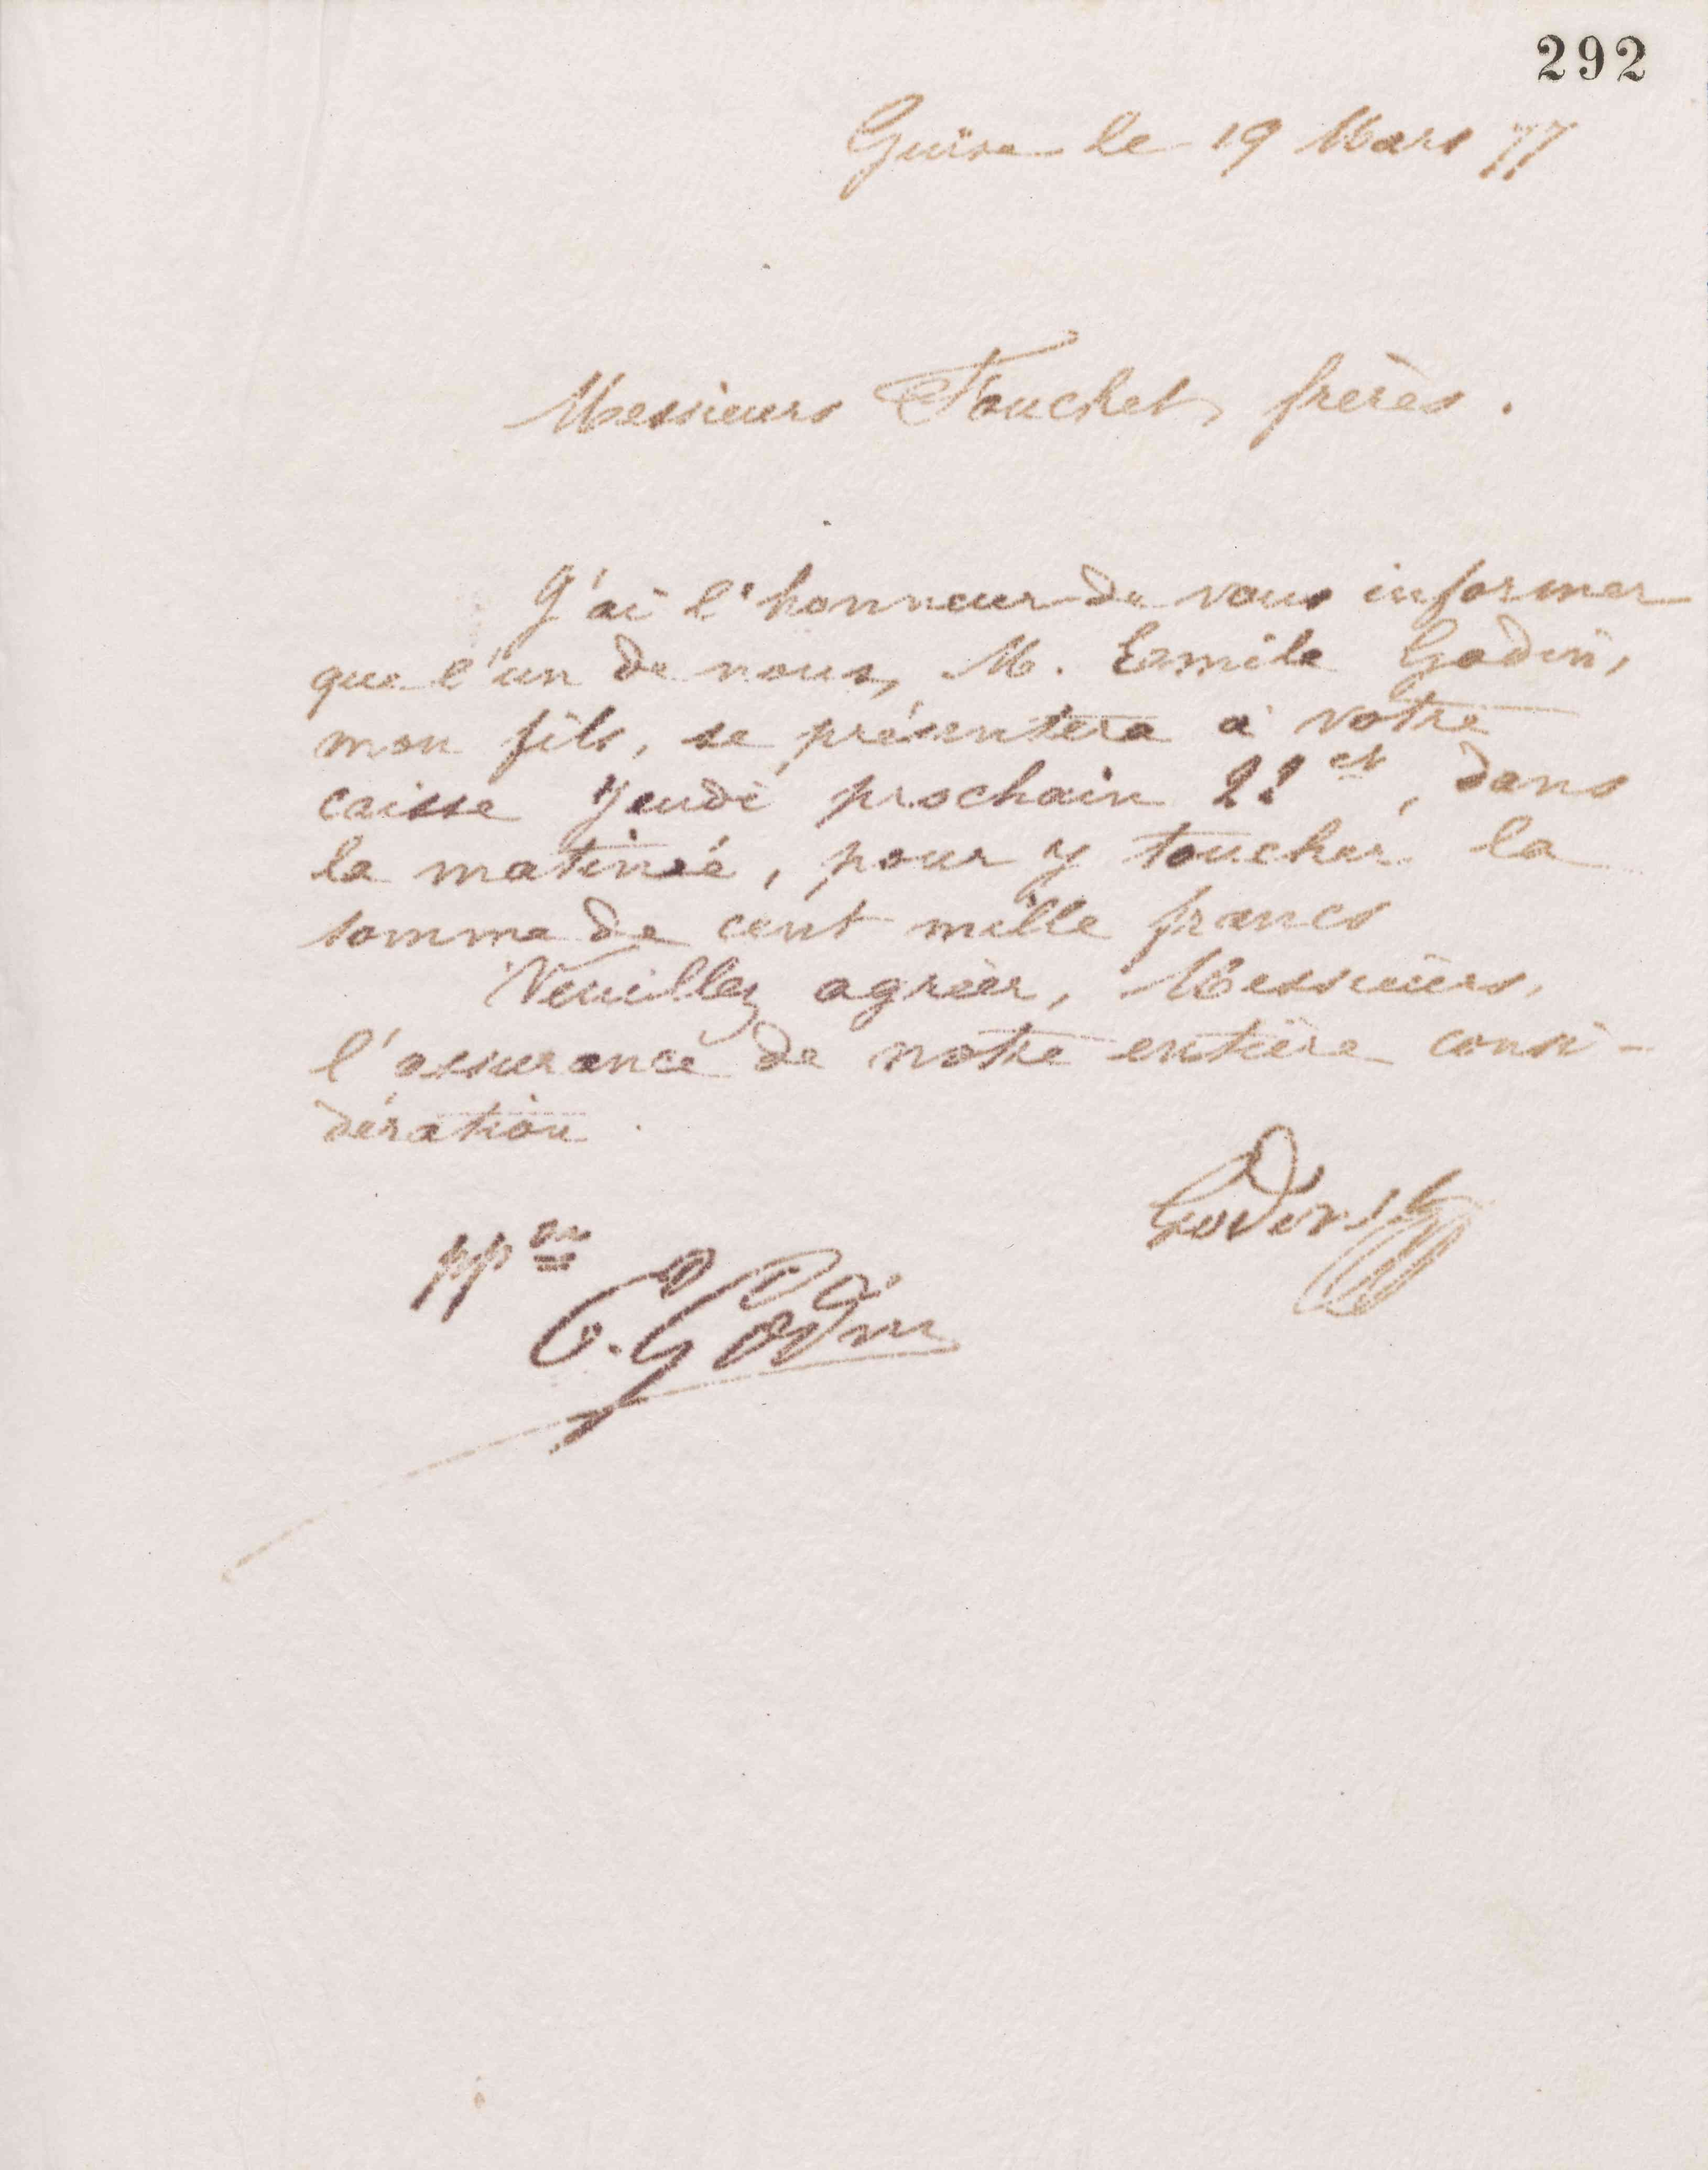 292
Guise le 19 Mars 77
Messieurs Fouchet frères.
J'ai l'honneur de vous informer
que l'un de nous, M. Emile Godin,
mon fils, se présentera à votre
caisse Jeudi prochain 22 ct, dans
la matinée, pour y toucher la
somme de cent mille francs
Veuillez agréer, Messieurs,
l'assurance de notre entière consi-
dération.
Godin
ppon
E. Godin